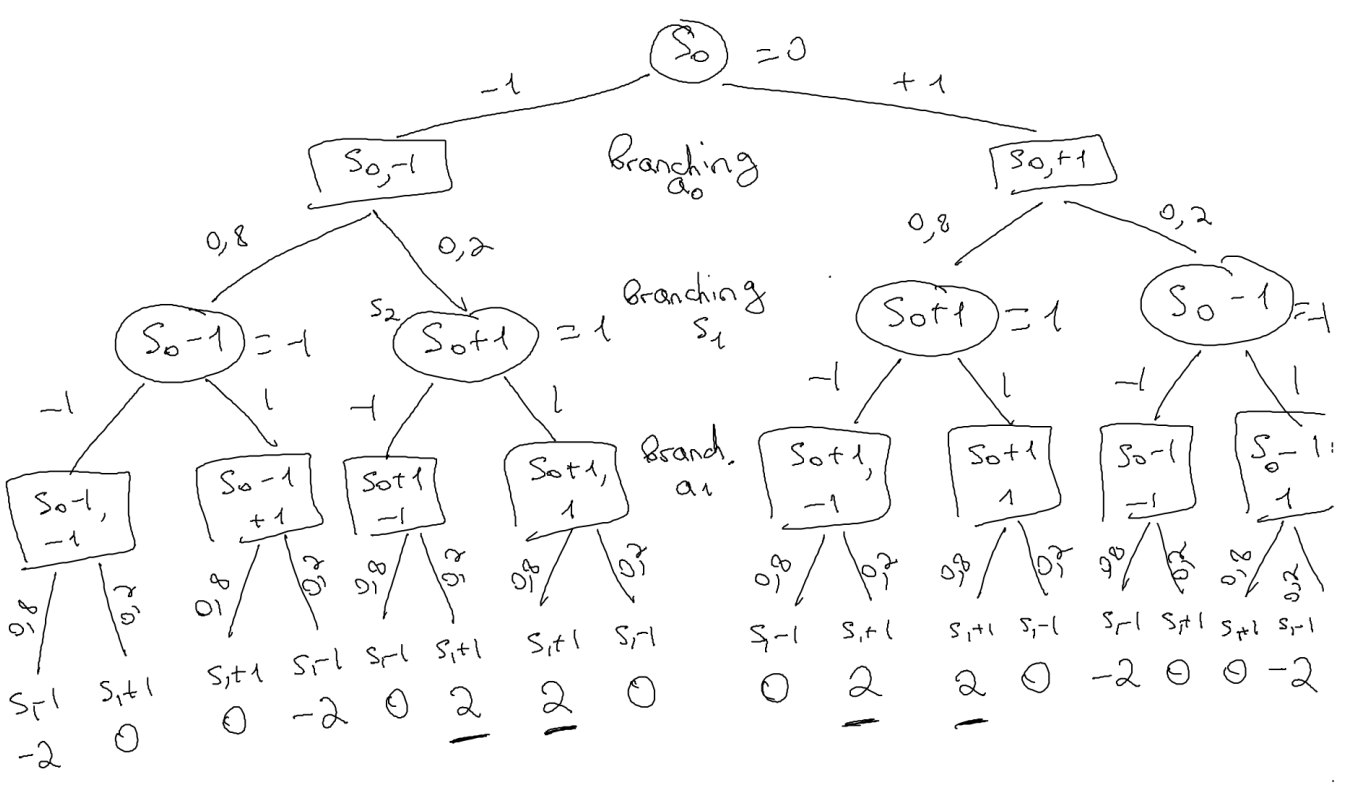 S₀ = 0
-1 +1
S₀,-1 Branching a₀ S₀,+1
0,8 0,2 0,8 0,2
S₀-1 = -1 S₂ S₀+1 = 1 Branching S₁ S₀+1 = 1 S₀-1 = -1
-1 1 -1 1 -1 1 -1 1
S₀-1, -1 S₀-1 +1 S₀+1 -1 S₀+1, 1 Branch. a₁ S₀+1, -1 S₀+1 1 S₀-1 -1 S₀-1 1
0,8 0,2 0,8 0,2 0,8 0,2 0,8 0,2 0,8 0,2 0,8 0,2 0,8 0,2 0,8 0,2
S₁-1 S₁+1 S₁+1 S₁-1 S₁-1 S₁+1 S₁+1 S₁-1 S₁-1 S₁+1 S₁+1 S₁-1 S₁-1 S₁+1 S₁+1 S₁-1
-2 0 0 -2 0 2 2 0 0 2 2 0 -2 0 0 -2